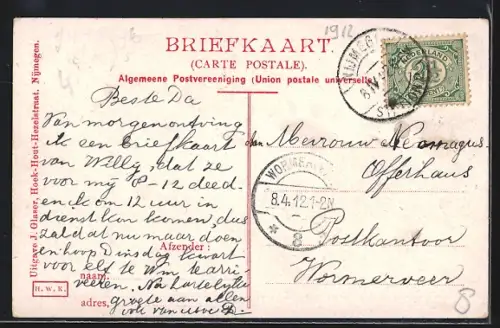 1912
BRIEFKAART.
(CARTE POSTALE).
Algemeene Postvereeniging (Union postale universelle)
NIJMEG
8 IV 12
STATION
NEDERLAND
2½
Beste Da
Van morgen ontving
ik een briefkaart
van Willy, dat ze
voor mij 8-12 deed
en ik om 12 uur in
dienst kan komen, dus
zal dat nu maar doen
en hoop Dinsdag kwart
voor elf te Wm te arri-
veeren. Na hartelijke
groete aan allen
ook van
Aan Mevrouw
Offerhaus
Postkantoor
Wormerveer
WORMERVEER
8.4.12.1-2N
8
Afzender:
naam,
adres,
Uitgave J. Glaser, Hoek-Hout-Hezelstraat, Nijmegen.
H. W. K.
8